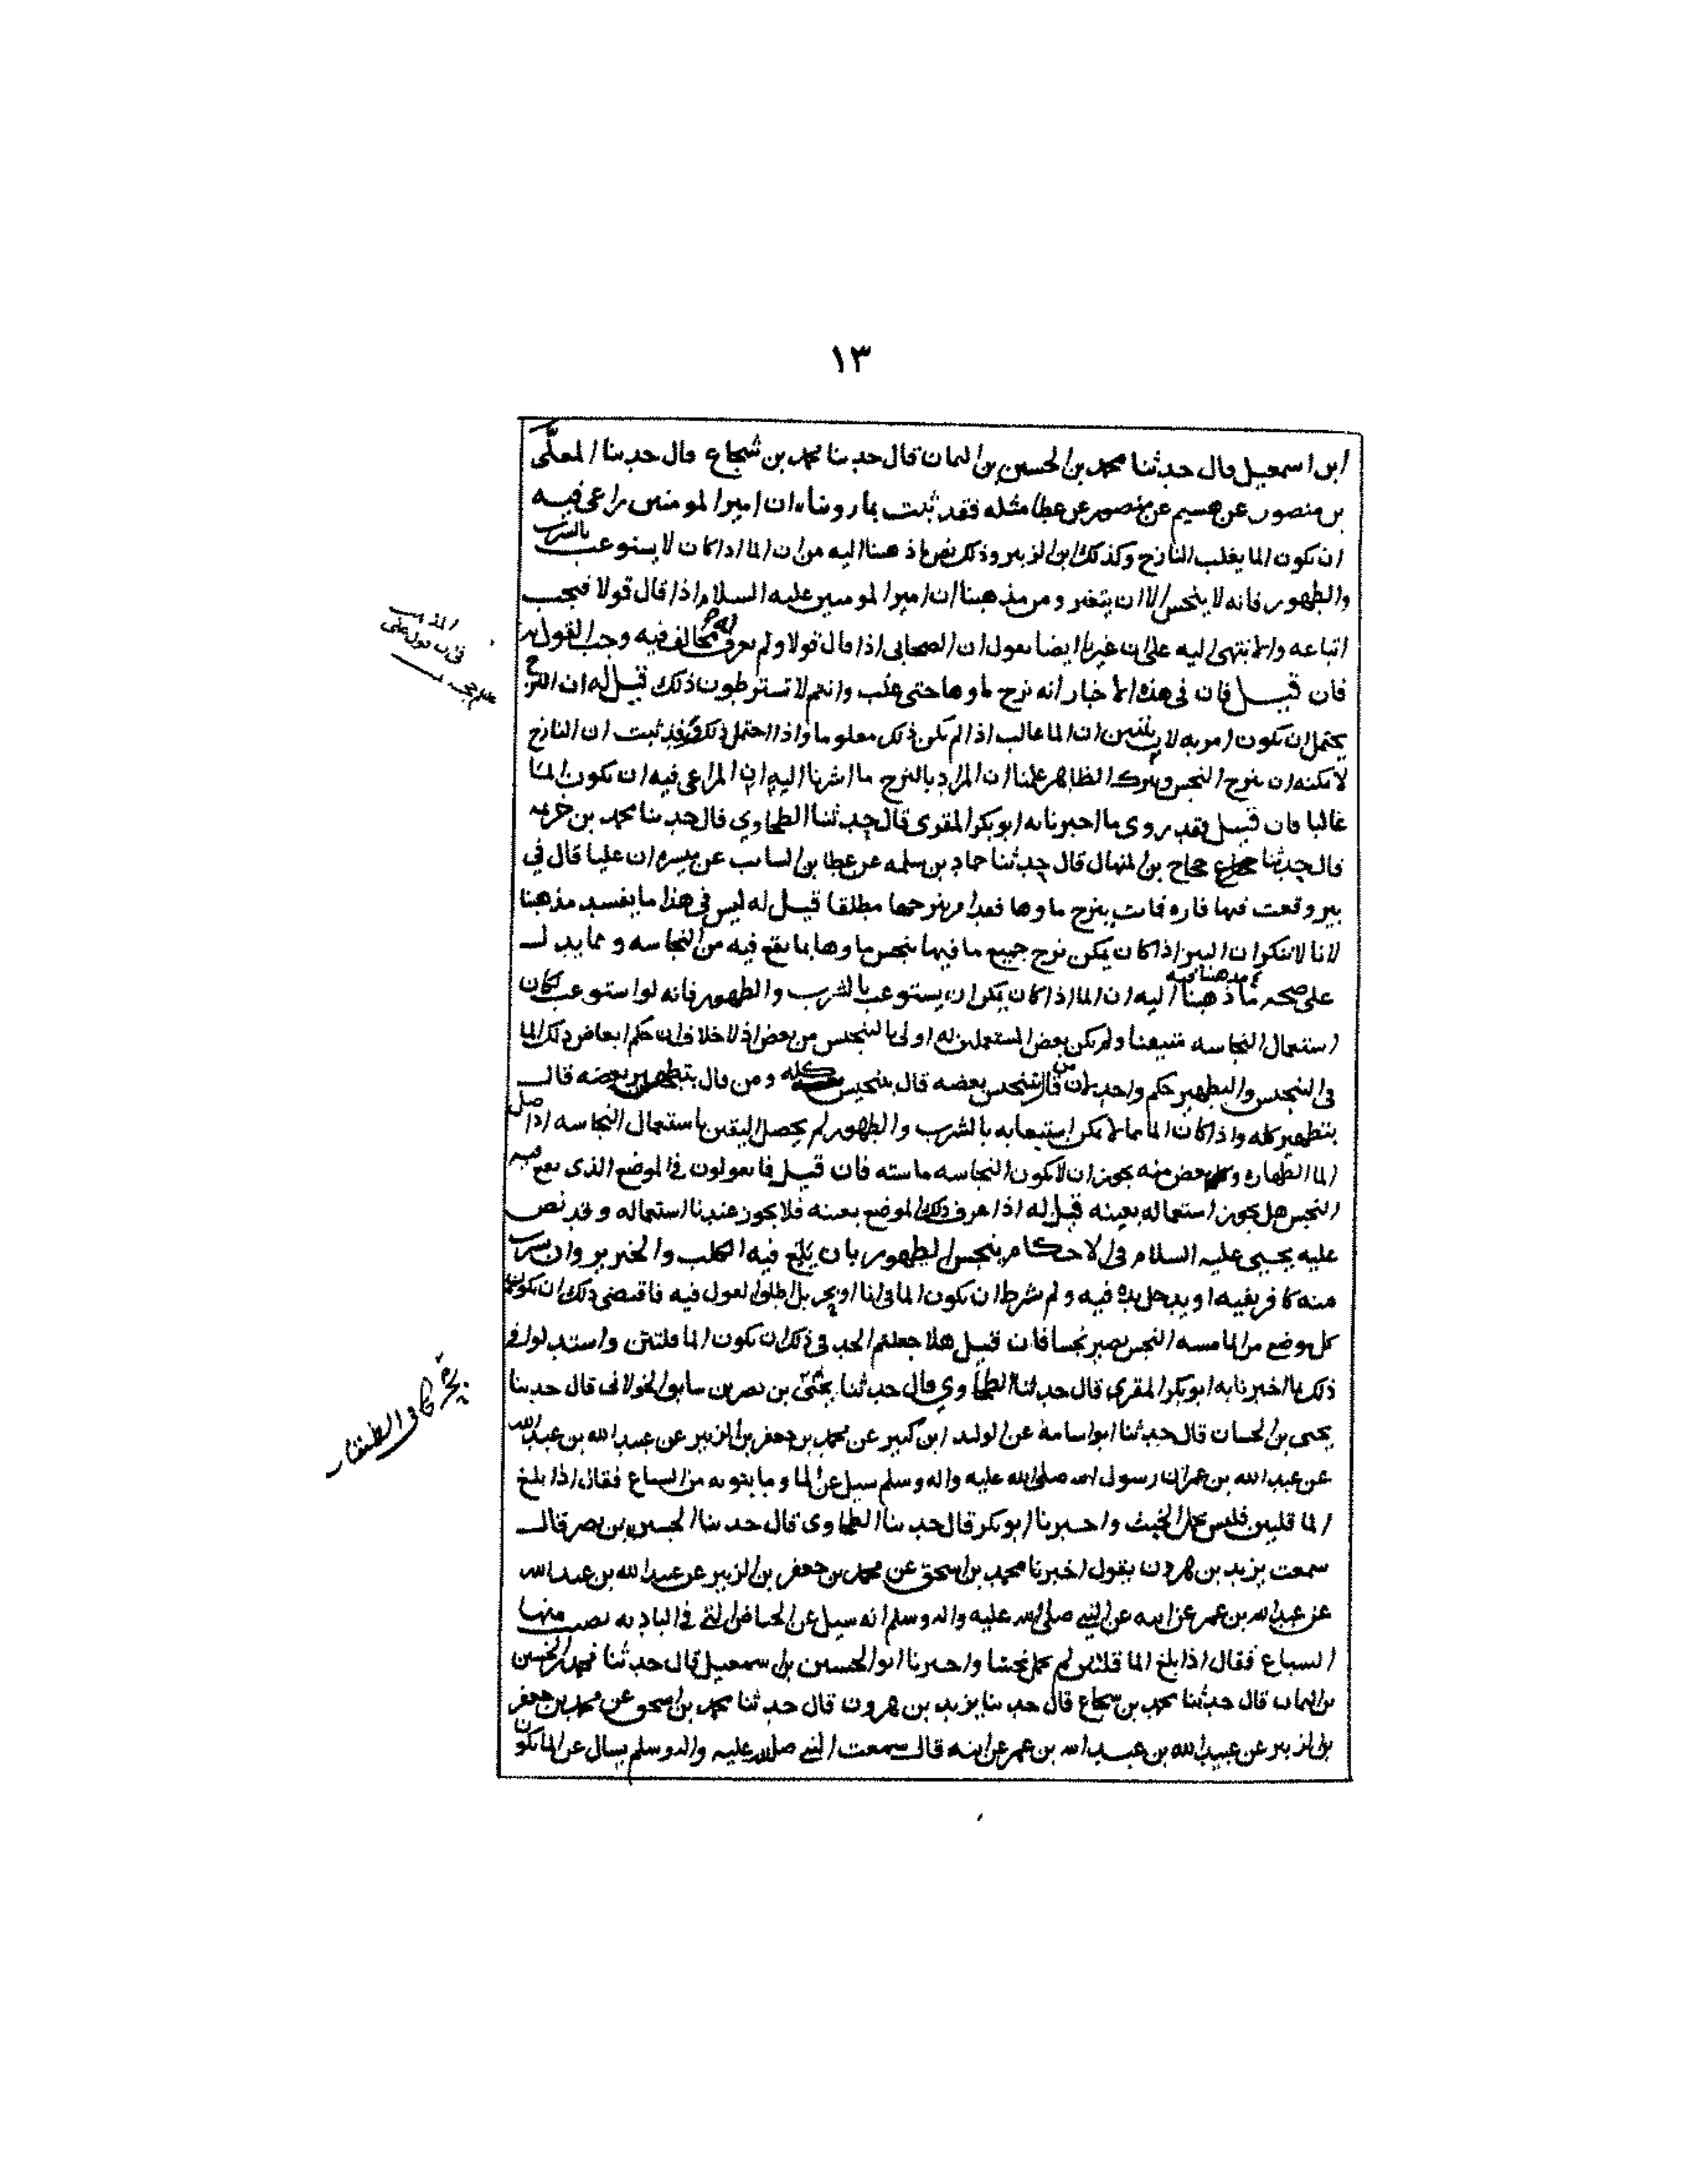 ١٣
ابن اسمعيل قال حدثنا محمد بن الحسين بن اليمان قال حدثنا محمد بن شجاع قال حدثنا المعلّى
بن منصور عن هسيم عن منصور عن عطا مثله فقد ثبت بما روينا ان امير المومنين راعى فيه
ان تكون الما يغلب النازح وكذلك ابن الزبير وذلك نص ما ذهبنا اليه من ان الما اذا كان لا يستوعب بالشرب
والطهور فانه لا ينجس الا ان يتغير ومن مذهبنا ان امير المومنين عليه السلام اذا قال قولا فيجب
اتباعه والانتهى اليه على ان غيرنا ايضا يقول ان الصحابي اذا قال قولا ولم يعرف له مخالف فيه وجب القول به
فان قيل فان في هذه الاخبار انه نزح ماوها حتى غلب وانتم لا تشترطون ذلك قيل له ان النزح
يحتمل ان تكون امر به لا يتيقن ان الما غالب اذا لم يكن ذلك معلوما واذا احتمل ذلك وقد ثبت ان النازح
لا يمكنه ان ينزح النجس ويترك الظاهر علمنا ان المراد بالنزح ما اشرنا اليه ان المراعى فيه ان تكون الما
غالبا فان قيل فقد روى ما اخبرنا به ابو بكر المقرى قال حدثنا الطحاوي قال حدثنا محمد بن خزيمه
قال حدثنا حجاج بن المنهال قال حدثنا حماد بن سلمه عن عطا بن السايب عن ميسره ان عليا قال في
بير وقعت فيها فاره فماتت ينزح ماوها فقد امر بنزحها مطلقا قيل له ليس في هذا ما يفسد مذهبنا
لانا لا ننكر ان البير اذا كان يمكن نزح جميع ما فيها ينجس ماوها بما يقع فيه من النجاسه ومما يدل
على صحه ما ذهبنا اليه ان الما اذا كان يمكن ان يستوعب بالشرب والطهور فانه لو استوعب لكان
استعمال النجاسه متيقنا ولم يكن بعض المستعملين له اولى بالتنجيس من بعض اذ لا خلاف ان حكم ابعاض ذلك الما
في التنجيس والتطهير حكم واحد لان من قال بتنجيس بعضه قال بتنجيس كله ومن قال بتطهير بعضه قال
بتطهير كله واذا كان الما مما لا يمكن استيعابه بالشرب والطهور لم يحصل اليقين باستعمال النجاسه اذ اصل
الما الطهاره وكل بعض منه يجوز ان لا تكون النجاسه ماسته فان قيل فما تقولون في الموضع الذى يقع فيه
النجس هل يجوز استعماله بعينه قيل له اذا عرف ذلك الموضع بعينه فلا يجوز عندنا استعماله وقد نص
عليه يحيى عليه السلام في الاحكام ينجس الطهور بان يلغ فيه الكلب والخنزير وان يشرب
منه كافر بفيه او يدخل يده فيه ولم يشرط ان تكون الما في انا او بير بل اطلق القول فيه فاقتضى ذلك ان تكون
كل موضع من الما مسه النجس يصير نجسا فان قيل هلا جعلتم الحد في ذلك ان تكون الما قلتين واستدلوا في
ذلك بما اخبرنا به ابو بكر المقرى قال حدثنا الطحاوي قال حدثنا بحر بن نصر بن سابق الخولانى قال حدثنا
يحيى بن الحسان قال حدثنا ابو اسامة عن الوليد ابن كبير عن محمد بن جعفر بن الزبير عن عبيد الله بن عبد الله
عن عبد الله بن عمر ان رسول الله صلى الله عليه واله وسلم سيل عن الما وما ينوبه من السباع فقال اذا بلغ
الما قليين فليس يحمل الخبث واخبرنا ابو بكر قال حدثنا الطحاوى قال حدثنا الحسين بن نصر قال
سمعت يزيد بن هرون يقول اخبرنا محمد بن اسحق عن محمد بن جعفر بن الزبير عن عبيد الله بن عبد الله
عن عبد الله بن عمر عن ابيه عن النبي صلى الله عليه واله وسلم انه سيل عن الحياض التى في الباديه تصيب منها
السباع فقال اذا بلغ الما قلتين لم يحمل نجسا واخبرنا ابو الحسين بن اسمعيل قال حدثنا محمد بن الحسين
بن اليمان قال حدثنا محمد بن شجاع قال حدثنا يزيد بن هرون قال حدثنا محمد بن اسحق عن محمد بن جعفر
بن الزبير عن عبيد الله بن عبد الله بن عمر عن ابيه قال سمعت النبي صلى الله عليه واله وسلم يسال عن الما يكون